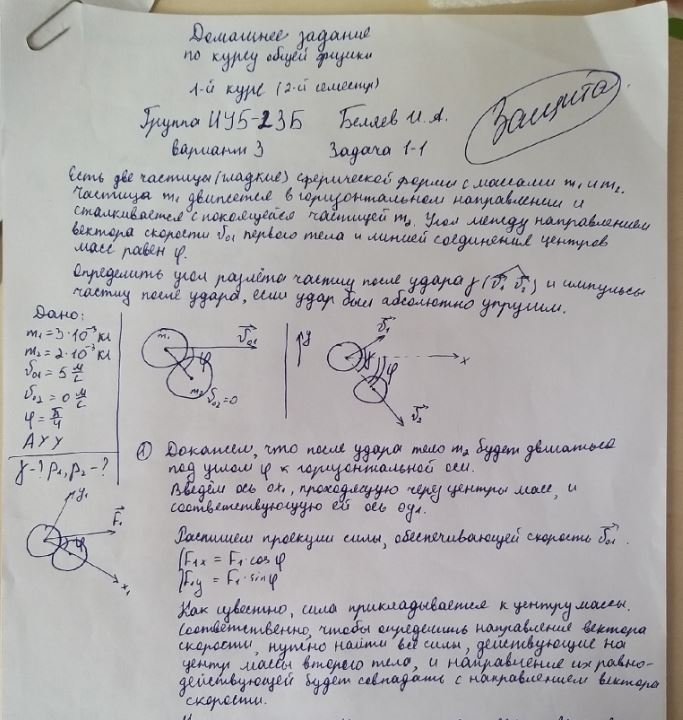 Домашнее задание
по курсу общей физики
1-й курс (2-й семестр)
Группа ИУ5-23Б Беляев И. А.
вариант 3 Задача 1-1
Защита
Есть две частицы (гладкие) сферической формы с массами m₁ и m₂.
Частица m₁ движется в горизонтальном направлении и
сталкивается с покоящейся частицей m₂. Угол между направлением
вектора скорости v₀₁ первого тела и линией соединения центров
масс равен φ.
Определить угол разлёта частиц после удара γ (v⃗₁ v⃗₂) и импульсы
частиц после удара, если удар был абсолютно упругим.
Дано:
m₁ = 3·10⁻³ кг
m₂ = 2·10⁻³ кг
v₀₁ = 5 м/с
v₀₂ = 0 м/с
φ = π/4
АУУ
γ-? p₁, p₂ -?
m₁ φ v⃗₀₁
m₂ v⃗₀₂=0
y v⃗₁
γ φ x
v⃗₂
y₁
F⃗₁
φ
x₁
① Докажем, что после удара тело m₂ будет двигаться
под углом φ к горизонтальной оси.
Введём ось ox₁, проходящую через центры масс, и
соответствующую ей ось oy₁.
Распишем проекции силы, обеспечивающей скорость v⃗₀₁.
F₁x = F₁·cosφ
F₁y = F₁·sinφ
Как известно, сила прикладывается к центру массы.
Соответственно, чтобы определить направление вектора
скорости, нужно найти все силы, действующие на
центр массы второго тела, и направление их равно-
действующей будет совпадать с направлением вектора
скорости.